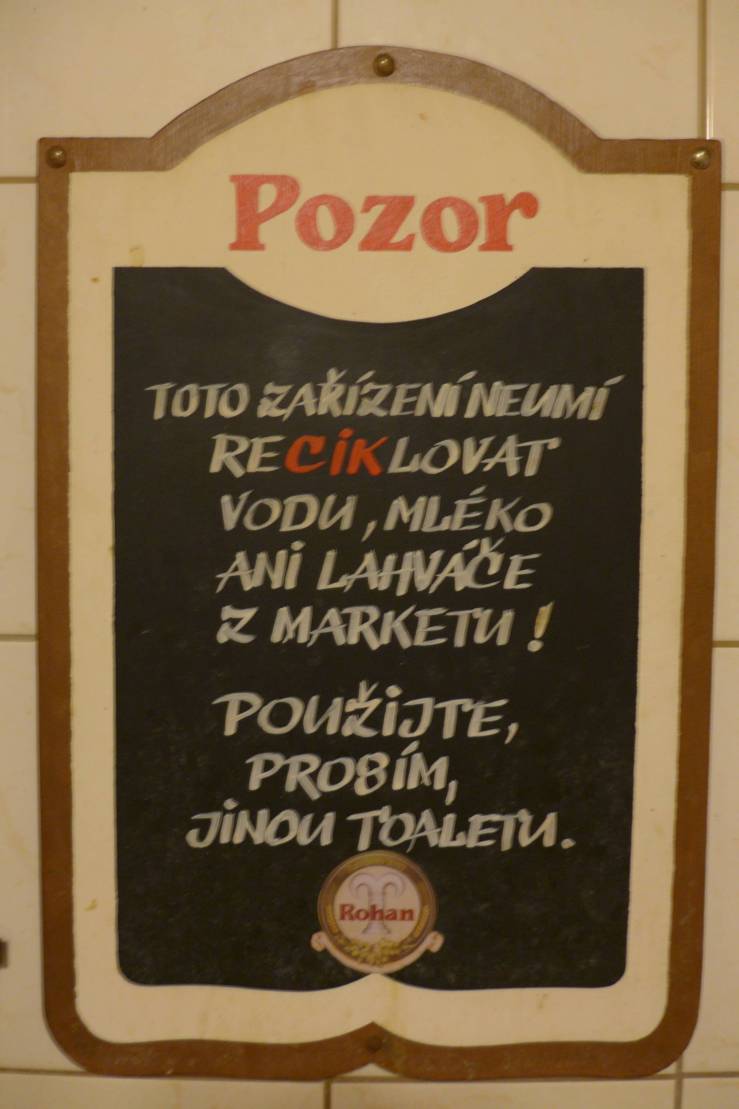 Pozor
TOTO ZAŘÍZENÍ NEUMÍ
RECiKLOVAT
VODU, MLÉKO
ANi LAHVÁČE
Z MARKETU!
POUŽiJTE,
PROSÍM,
JiNOU TOALETU.
Rohan